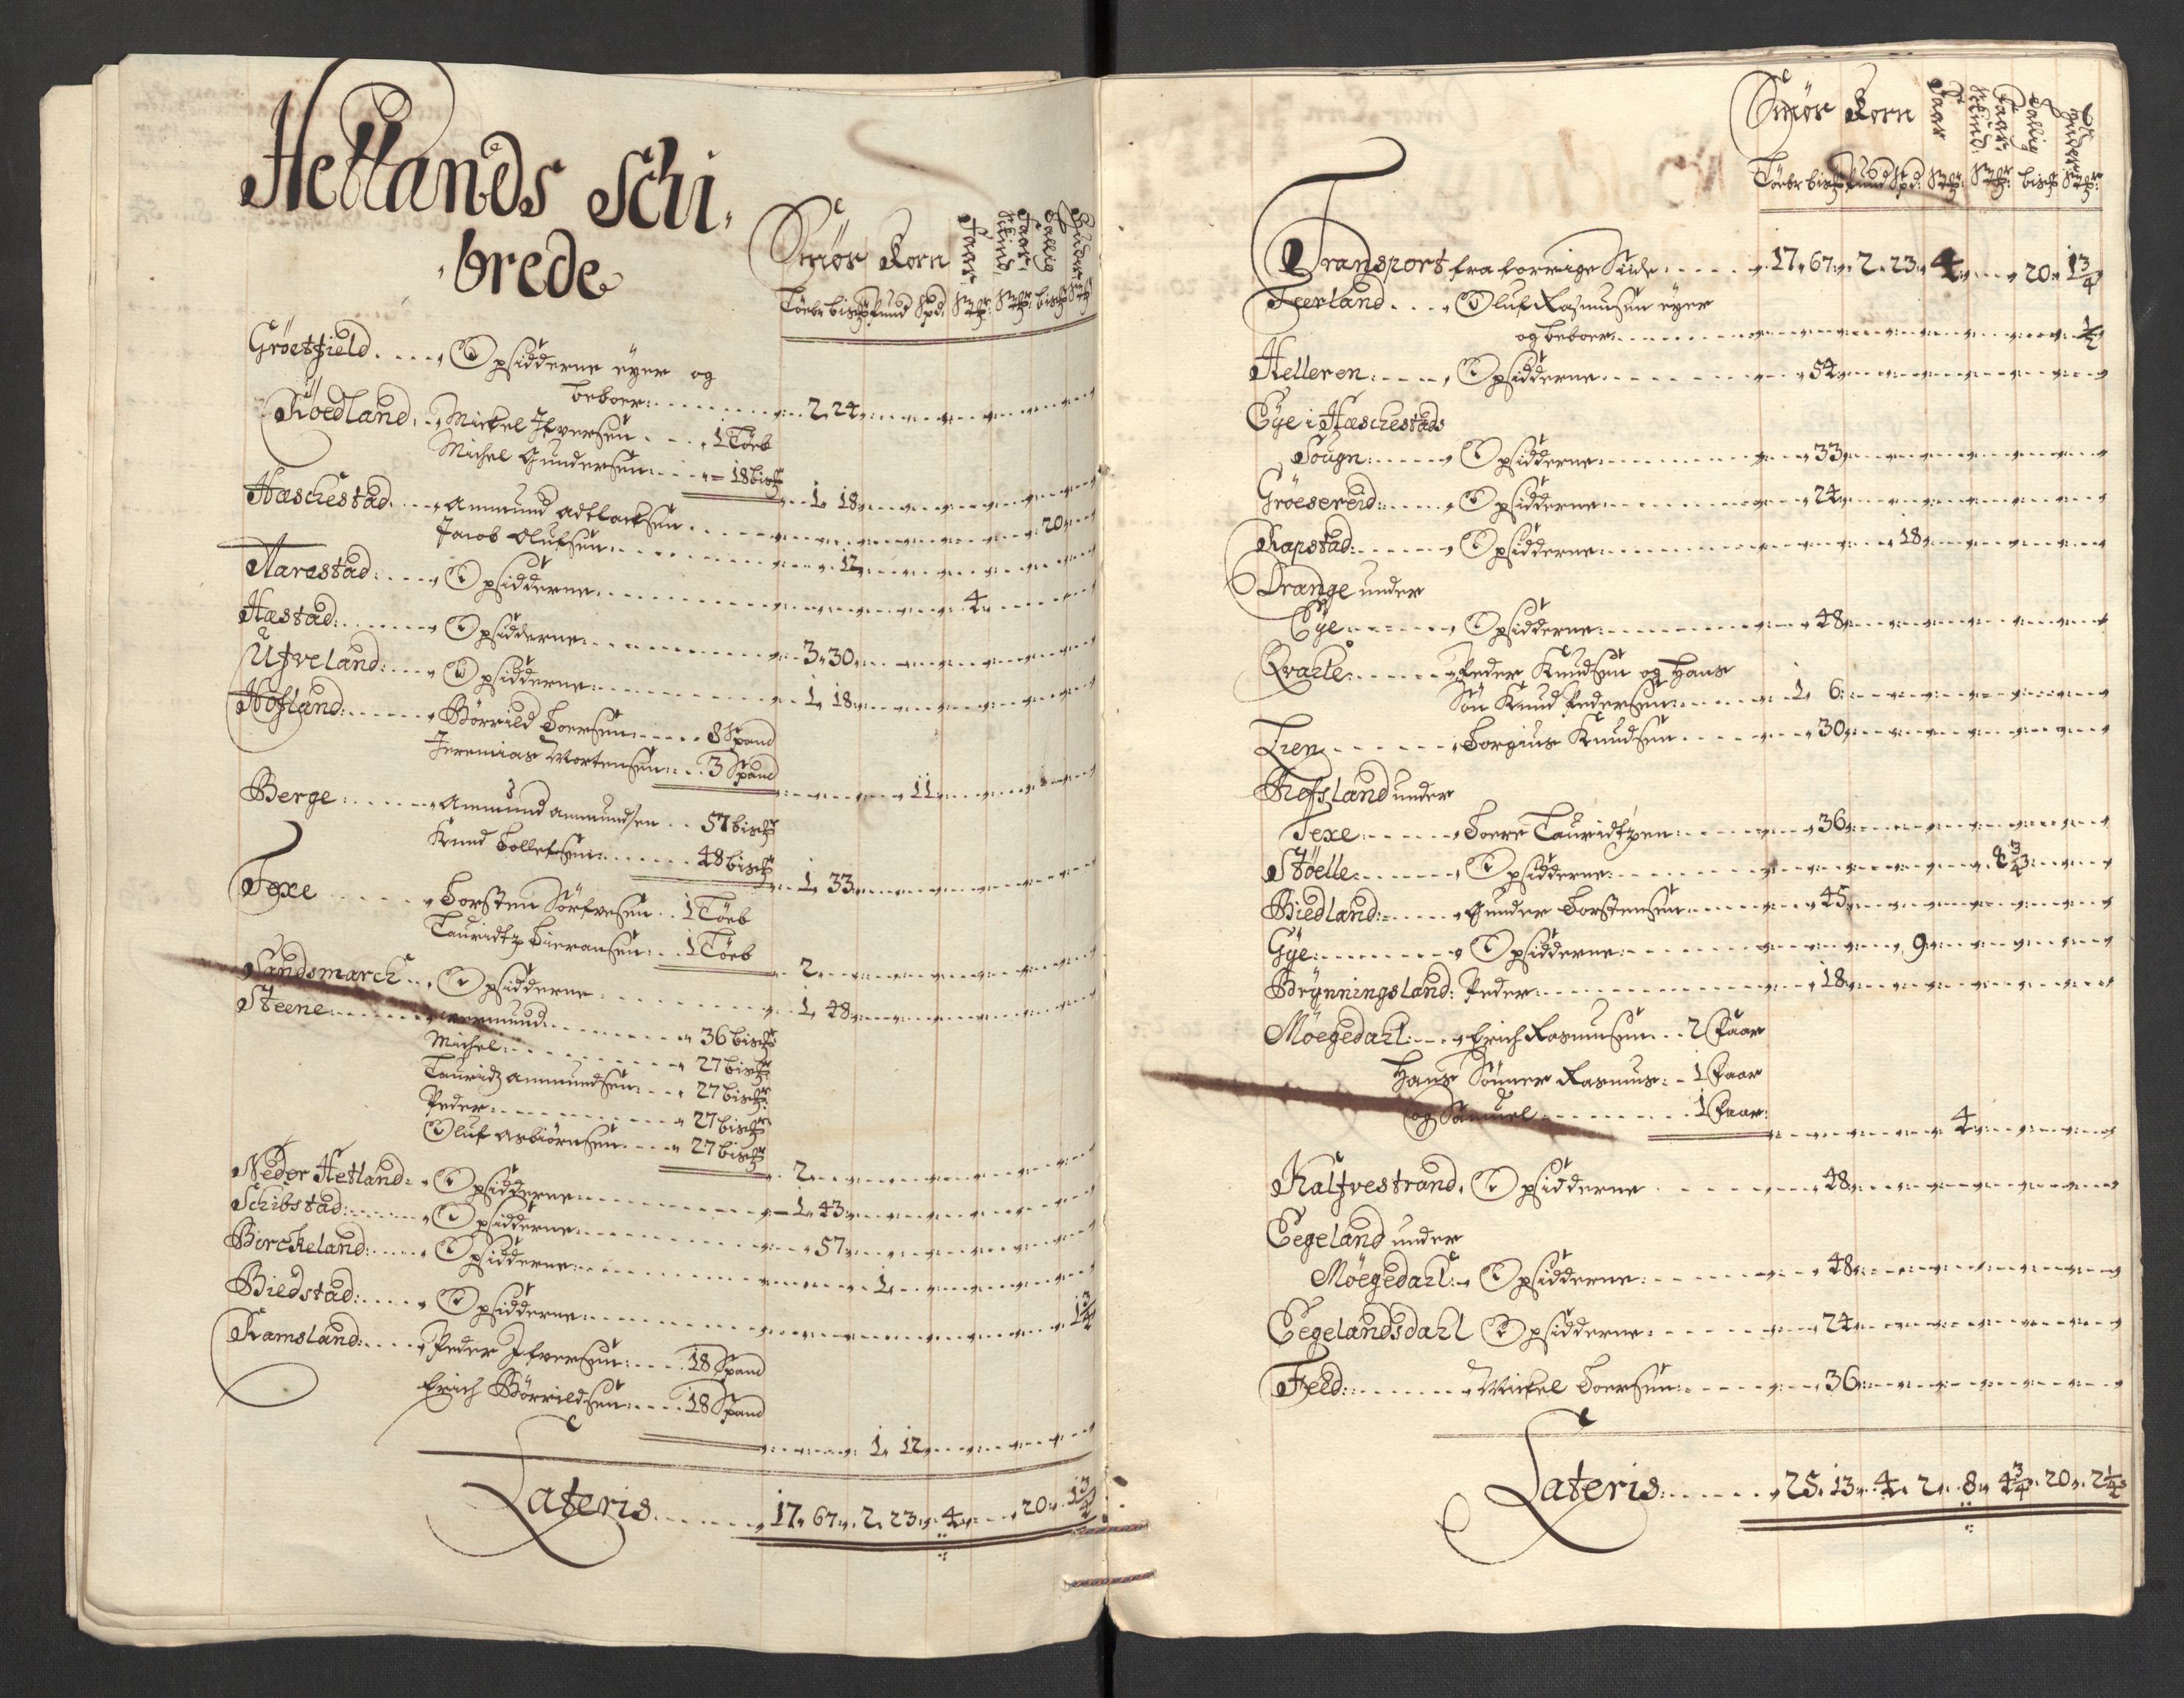 Hetlands Schi
brede
Smör Korn Faar Schind Faar Kallig Huder
Töebr bispd Pund Spd: Stkr: Stkr: bispd Stkr
Gröetfield . . . . Opsidderne eyer og
beboer: . . . 2. 24
Röedland: Mickel Ifversen . . . 1 Töeb
Michel Gundersen: . . . 18 bispd
1. 18
Hæschestad . . . Ammund Adtlacksen . . . 20
Jacob Olufsen . . . 12
Aarestad: . . . Opsidderne . . . 4
Hæstad: . . . Opsidderne . . . 3. 30
Ufveland: . . . Opsidderne . . . 1. 18
Hofland: . . . Börrild Toersen . . . 8 Spand
Jeremias Mortensen: . . 3 Spand
11
Berge: . . . Ammund Ammundsen . . 57 bispd
Knud Tollefsen . . . 48 bispd
1. 33
Fexe . . . Torsten Sörfvesen . . 1 Töeb
Lauridtz Siveransen: . . 1 Töeb
2
Sandsmarch . . Opsidderne . . . 1. 48
Steene . . . Ammund . . . 36 bispd
Michel: . . . 27 bispd
Lauridz Ammundsen: . . 27 bispd
Peder: . . . 27 bispd
Oluf Asbiörnsen . . . 27 bispd
2
Neder Hetland: Opsidderne . . . 1. 43
Schibstad: . . . Opsidderne . . . 57
Birckeland: . . . Opsidderne . . . 1
Biedstad: . . . Opsidderne . . . 1 3/4
Ramsland: . . . Peder Ifversen: . . . 18 Spand
Erich Börrildsen: . . . 18 Spand
1. 12
Lateris . . . 17. 67. 2. 23. 4. . . 20. 1 3/4
Smör Korn Faar Schind: Faar: Kallig Huder
Töebr bispd Pund Spd: Stkr: Stkr: bispd Stkr:
Transport fra forrige Side . . . 17. 67. 2. 23. 4. . . 20. 1 3/4
Feerland . . . Oluf Rasmusen eyer
og beboer . . . 1/2
Helleren: . . . Opsidderne . . . 54
Eye i Hæschestads
Sougn: . . . Opsidderne . . . 33
Gröesereid: . . . Opsidderne . . . 24
Rapstad: . . . Opsidderne . . . 18
Drange under
Eye . . . Opsidderne . . . 48
Qvasle: . . . Peder Knudsen og hans
Sön Knud Pedersen . . . 1. 6
Lien . . . Torgius Knudsen . . . 30
Refsland under
Fexe: . . . Toere Lauridtzen: . . . 36
Stöelle: . . . Opsidderne . . . 4 3/4
Biedland: . . . Gunder Torstensen . . . 45
Gye: . . . Opsidderne . . . 9
Brynningsland: Peder . . . 18
Möegedahl: . . . Erich Rasmusen . . 2 Faar
Hans Sönner Rasmus: . 1 Faar
og Samuel . . . 1 Faar:
4
Kalfvestrand. Opsidderne . . . 48
Eegeland under
Möegedahl: . Opsidderne . . . 48
Eegelandsdahl Opsidderne . . . 24
Feed: . . . Mickel Toersen . . . 36
Lateris: . . . 25. 13. 4. 2. 8. 4 3/4. 20. 2 1/4